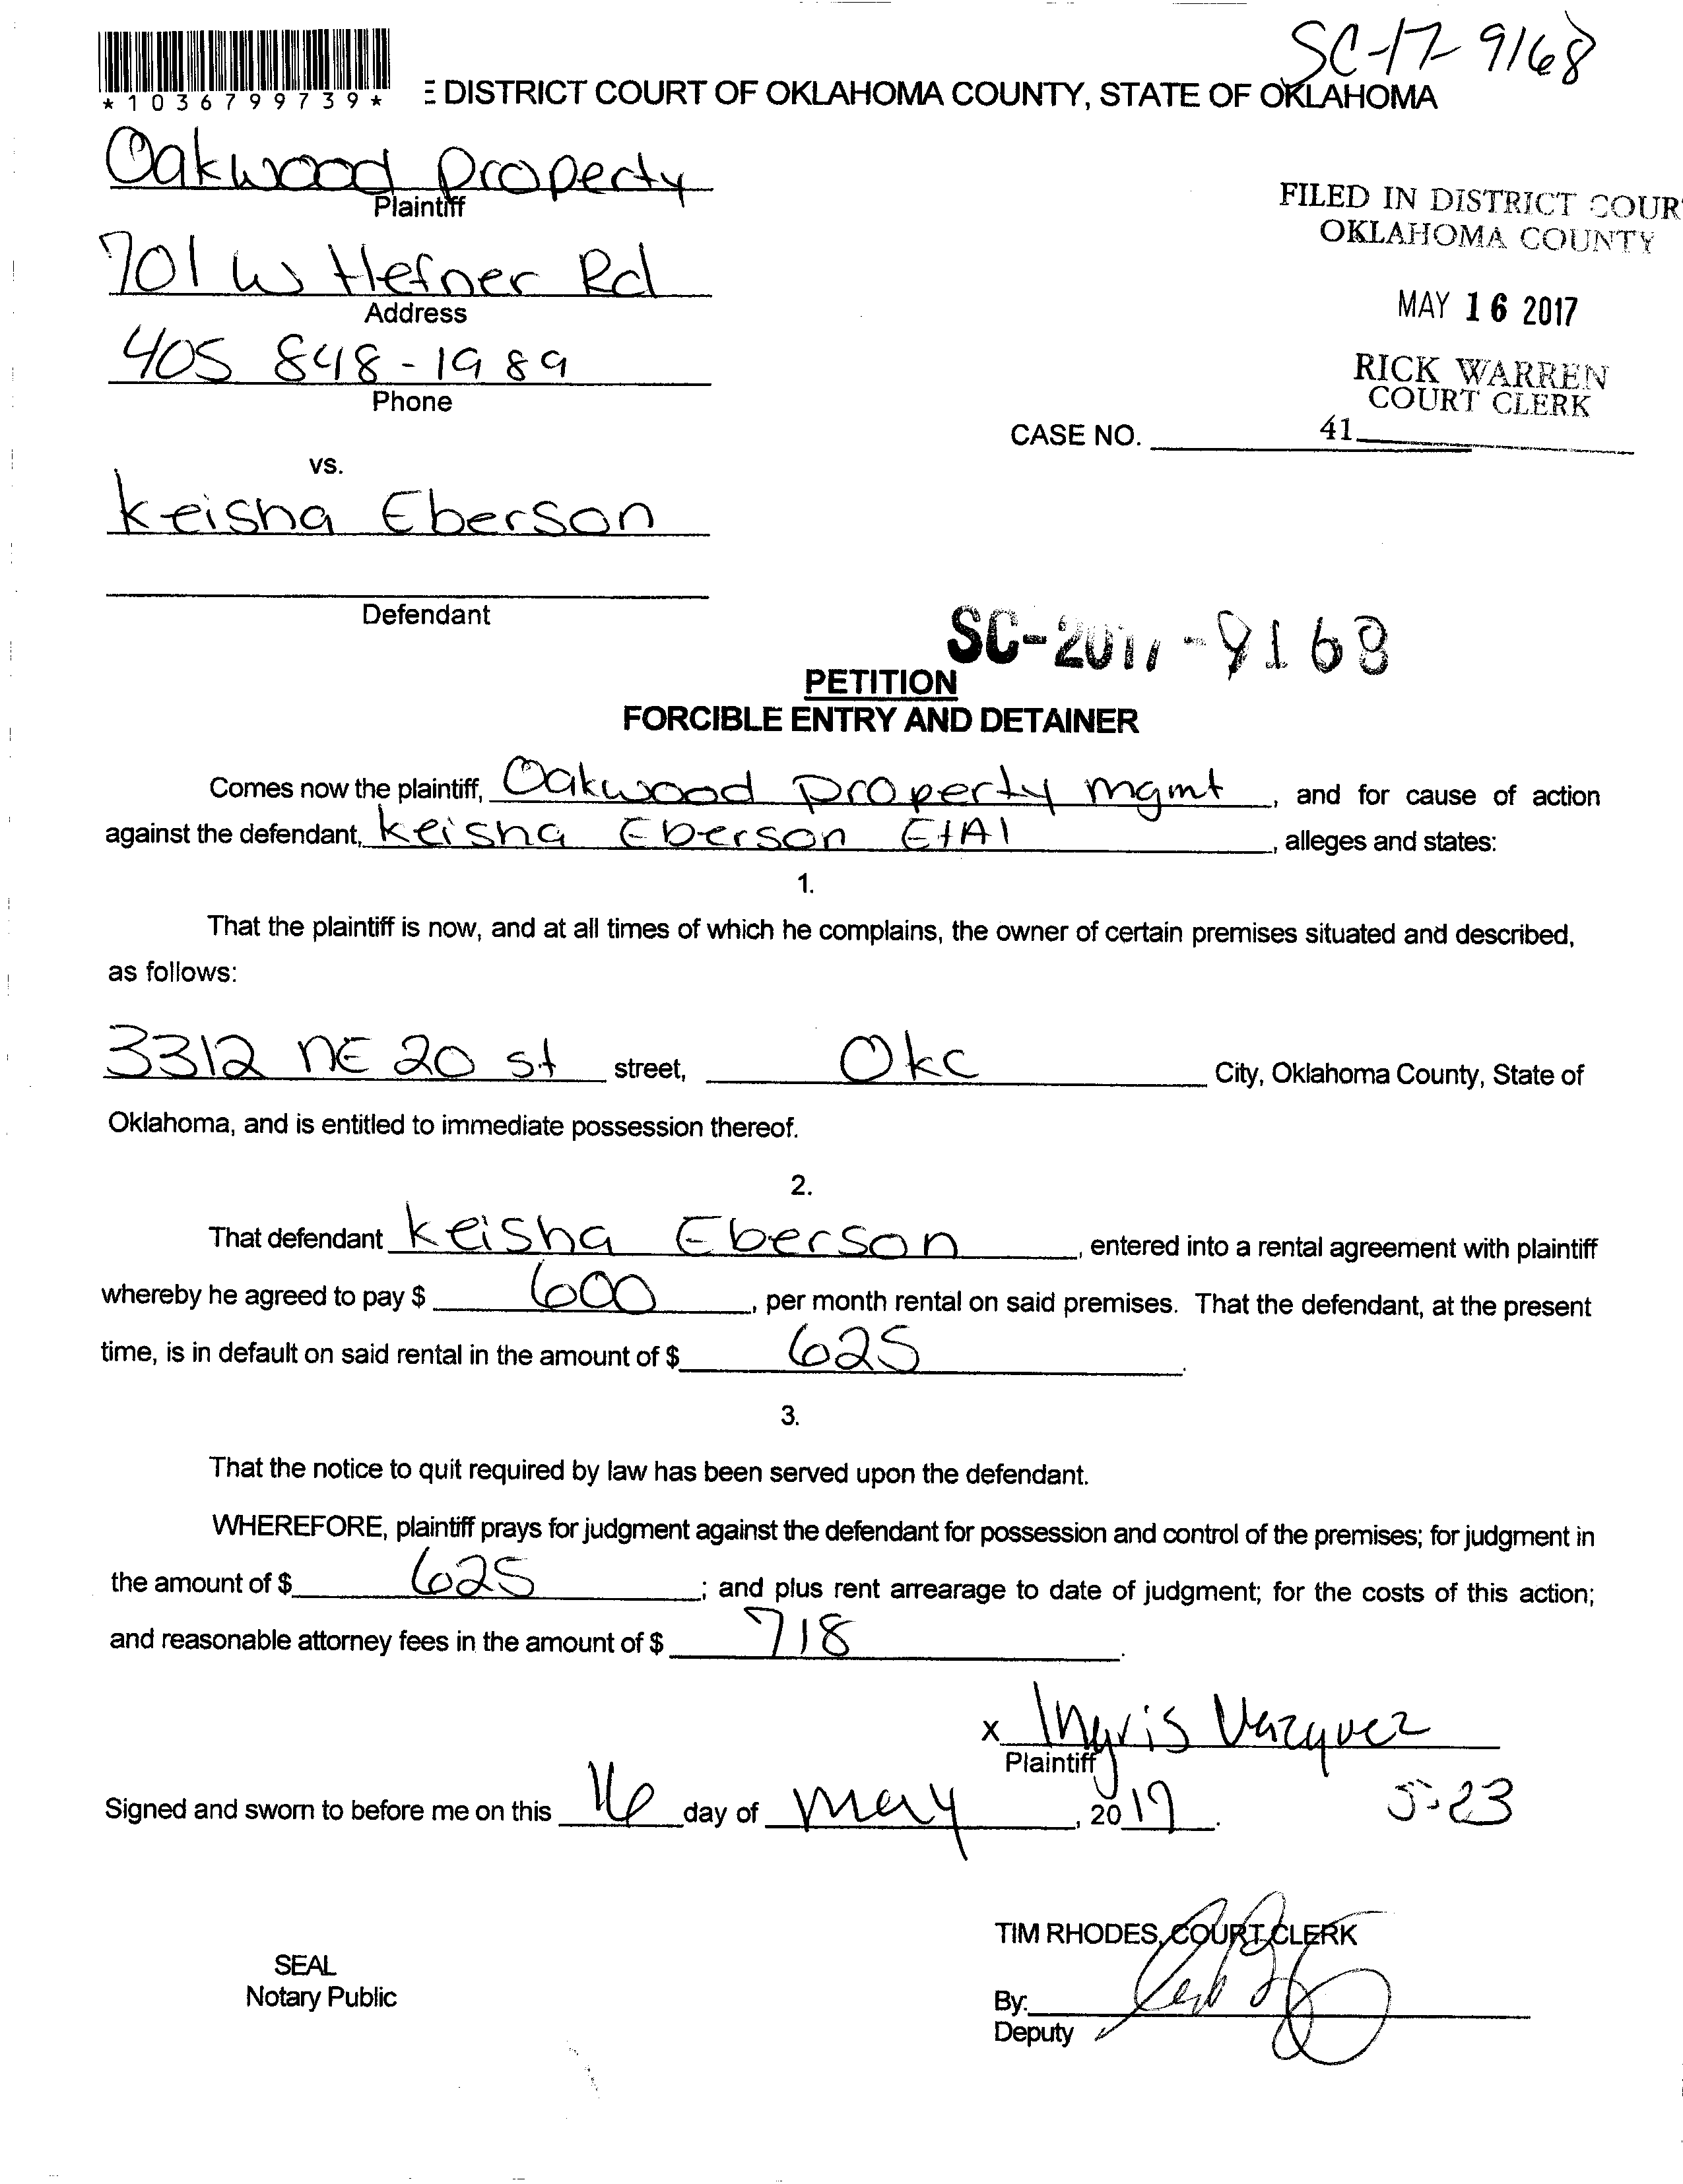 SC-17-9168
*1036799739*
E DISTRICT COURT OF OKLAHOMA COUNTY, STATE OF OKLAHOMA
Oakwood Property
Plaintiff
FILED IN DISTRICT COUR
OKLAHOMA COUNTY
701 W Hefner Rd
Address
MAY 16 2017
405 848-1989
Phone
RICK WARREN
COURT CLERK
CASE NO. 41
vs.
Keisha Eberson
Defendant
SC-2017-9168
PETITION
FORCIBLE ENTRY AND DETAINER
Comes now the plaintiff, Oakwood Property mgmt, and for cause of action
against the defendant, Keisha Eberson EtAl, alleges and states:
1.
That the plaintiff is now, and at all times of which he complains, the owner of certain premises situated and described,
as follows:
3312 NE 20 st street, Okc City, Oklahoma County, State of
Oklahoma, and is entitled to immediate possession thereof.
2.
That defendant Keisha Eberson, entered into a rental agreement with plaintiff
whereby he agreed to pay $ 600, per month rental on said premises. That the defendant, at the present
time, is in default on said rental in the amount of $ 625.
3.
That the notice to quit required by law has been served upon the defendant.
WHEREFORE, plaintiff prays for judgment against the defendant for possession and control of the premises; for judgment in
the amount of $ 625; and plus rent arrearage to date of judgment; for the costs of this action;
and reasonable attorney fees in the amount of $ 718.
x Ingris Vazquez
Plaintiff
Signed and sworn to before me on this 16 day of May, 2017. 5-23
TIM RHODES, COURT CLERK
SEAL
Notary Public
By:
Deputy